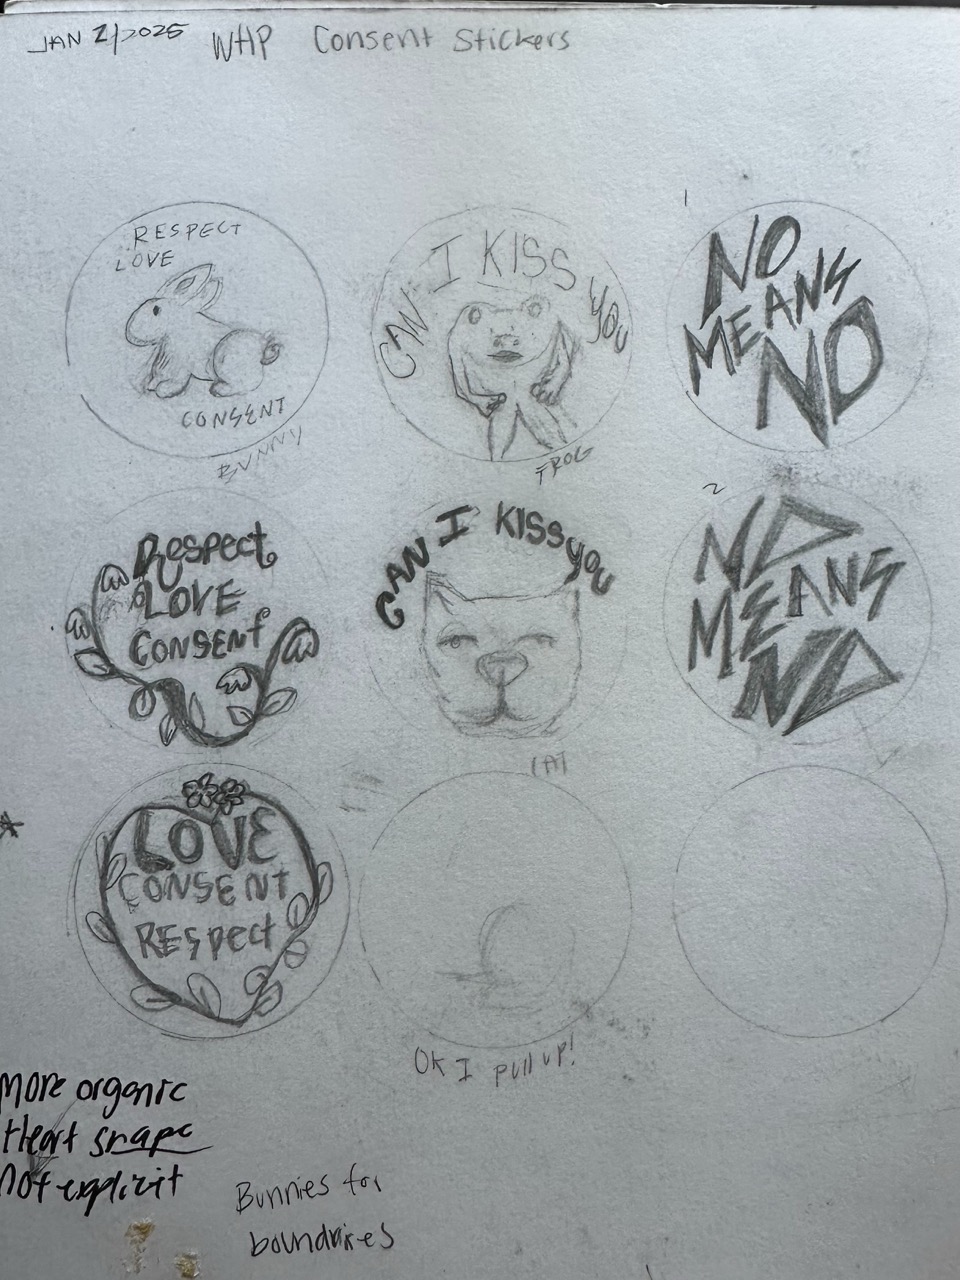 JAN 2/2025 WHP Consent Stickers
RESPECT
LOVE
CONSENT
BUNNY
CAN I KISS YOU
FROG
1
NO
MEANS
NO
Respect
LOVE
CONSENT
CAN I KISS YOU
CAT
2
NO
MEANS
NO
LOVE
CONSENT
RESPECT
OK I pull up!
More organic
Heart shape
not explicit
Bunnies for
boundries